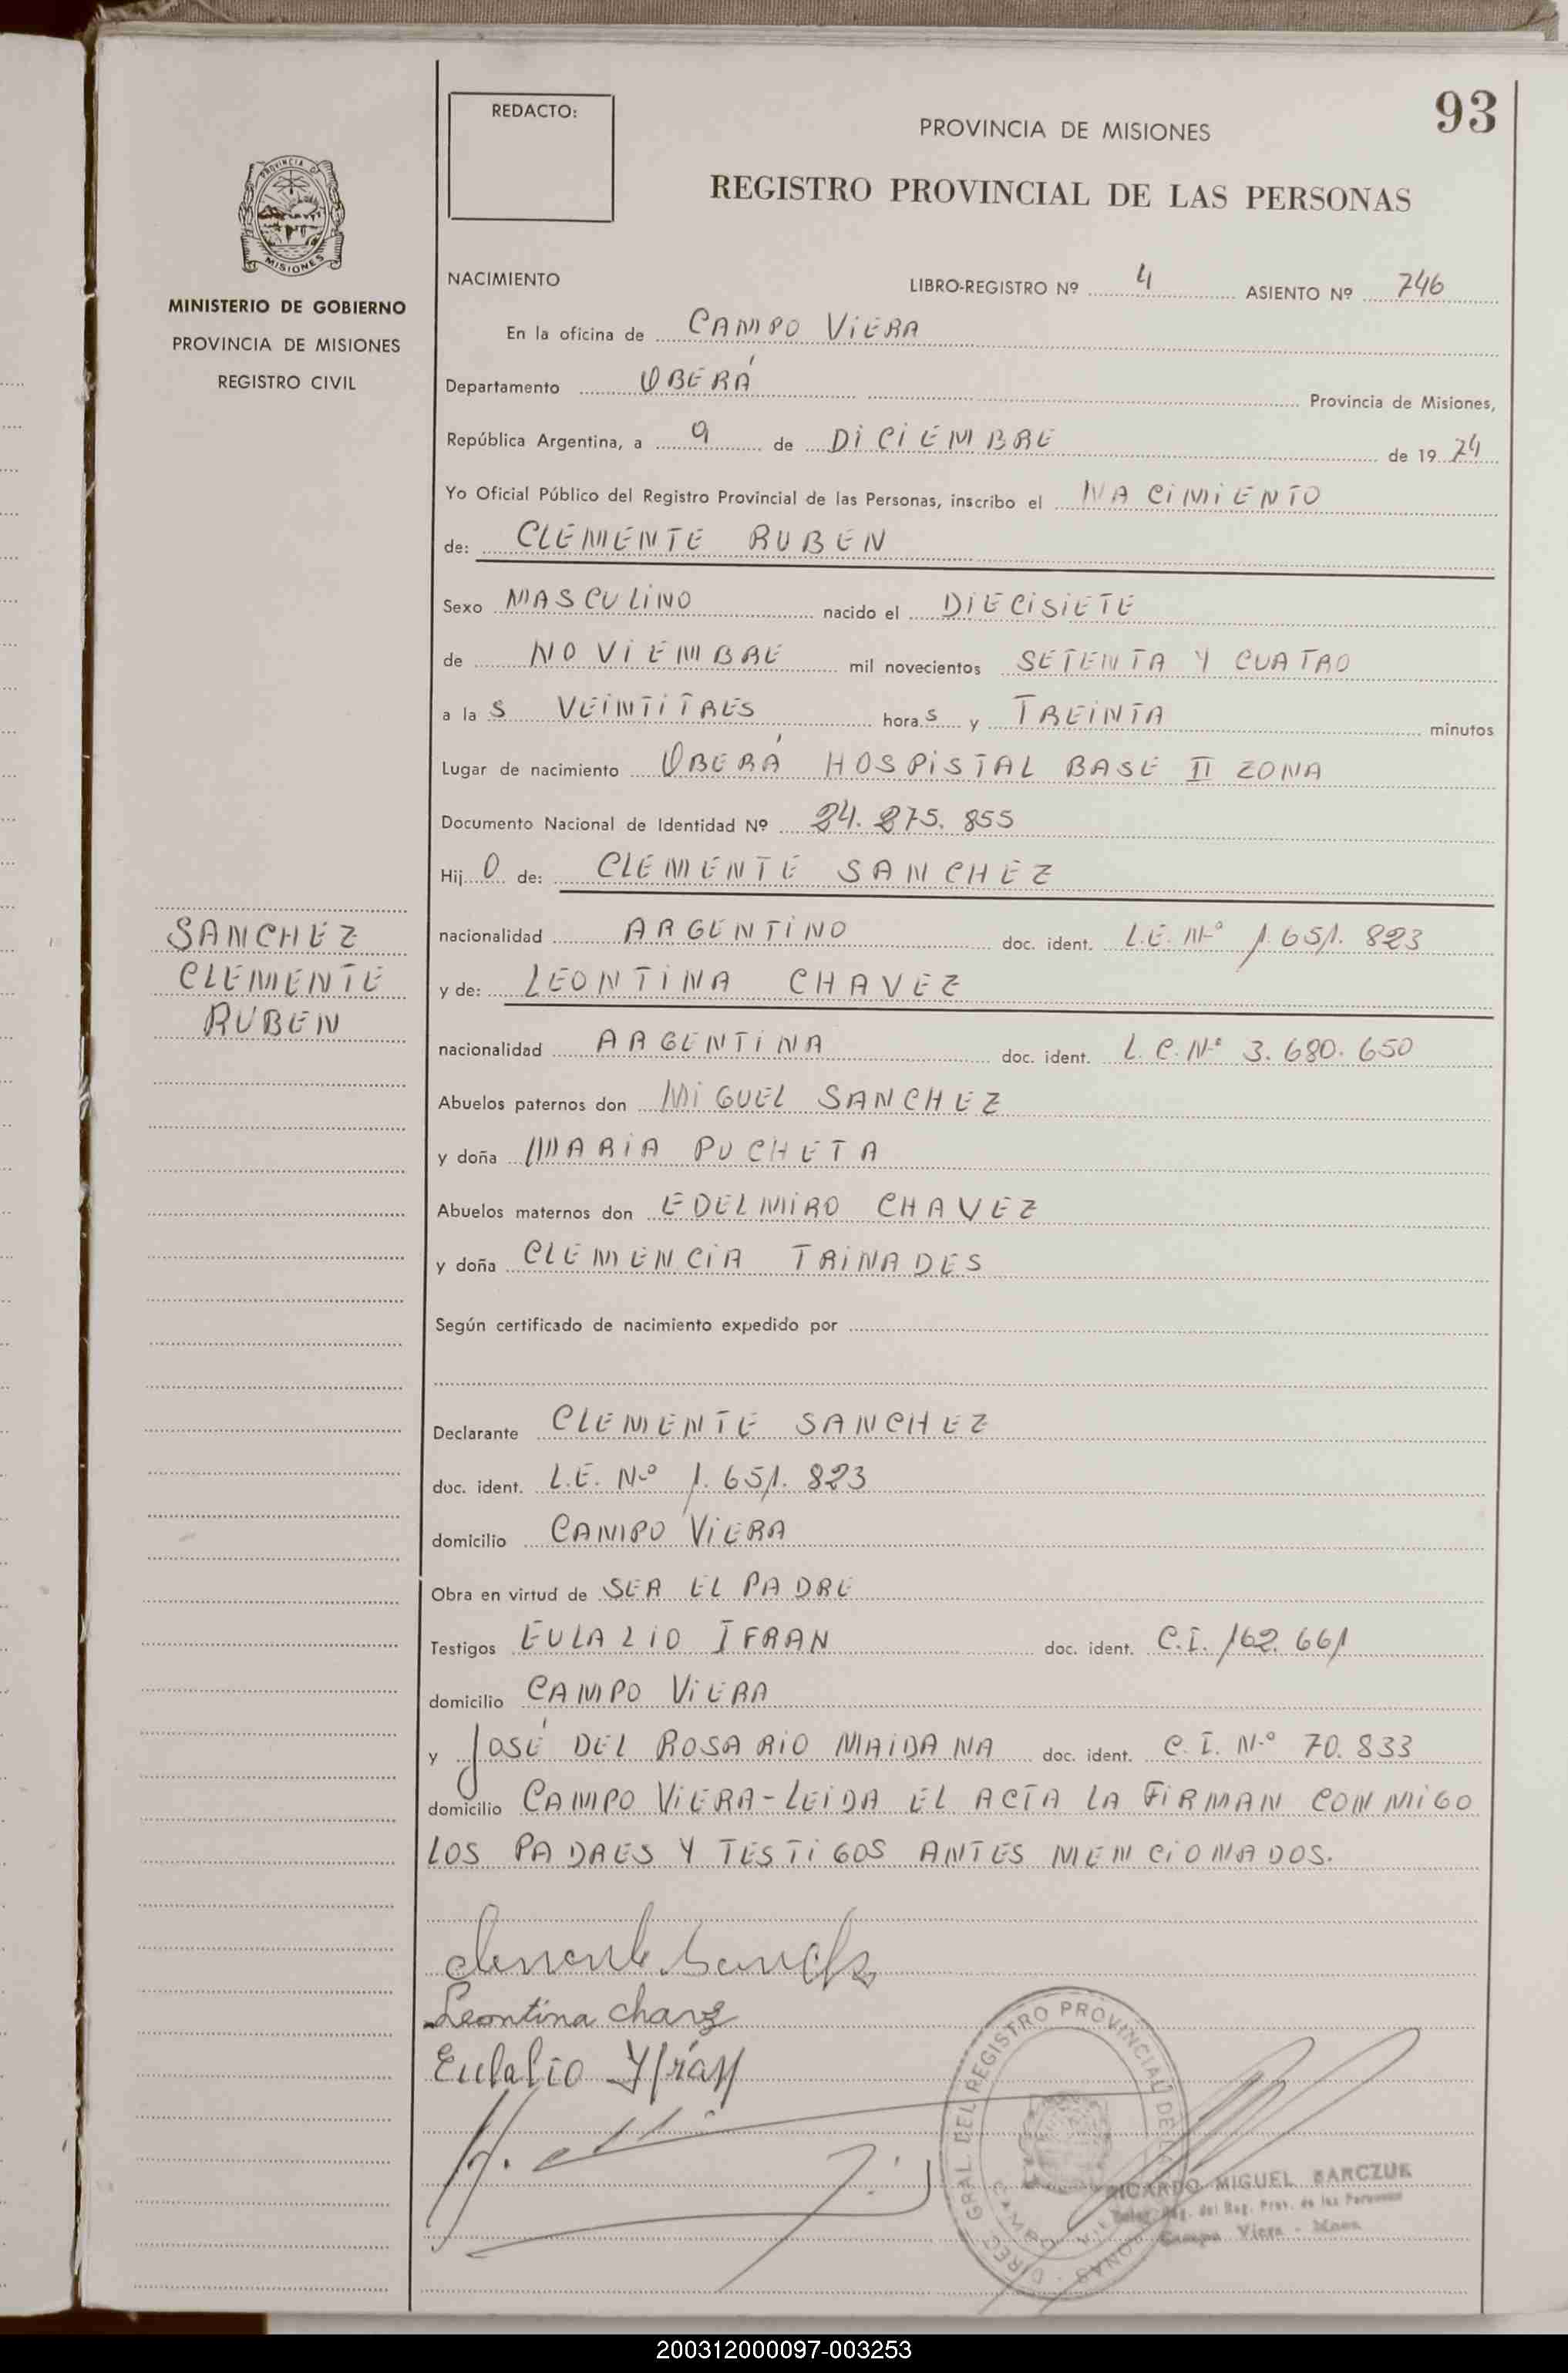 93
REDACTO:
PROVINCIA DE MISIONES
REGISTRO PROVINCIAL DE LAS PERSONAS
MISIONES
MINISTERIO DE GOBIERNO
PROVINCIA DE MISIONES
REGISTRO CIVIL
NACIMIENTO LIBRO-REGISTRO Nº 4 ASIENTO Nº 746
En la oficina de CAMPO VIERA
Departamento OBERÁ Provincia de Misiones,
República Argentina, a 9 de DICIEMBRE de 19 74
Yo Oficial Público del Registro Provincial de las Personas, inscribo el NACIMIENTO
de: CLEMENTE RUBEN
Sexo MASCULINO nacido el DIECISIETE
de NOVIEMBRE mil novecientos SETENTA Y CUATRO
a la S VEINTITRES hora S y TREINTA minutos
Lugar de nacimiento OBERÁ HOSPISTAL BASE II ZONA
Documento Nacional de Identidad Nº 24.275.855
Hij O de: CLEMENTE SANCHEZ
nacionalidad ARGENTINO doc. ident. L.E. Nº 1.651.823
SANCHEZ
CLEMENTE
RUBEN
y de: LEONTINA CHAVEZ
nacionalidad ARGENTINA doc. ident. L.C. Nº 3.680.650
Abuelos paternos don MIGUEL SANCHEZ
y doña MARIA PUCHETA
Abuelos maternos don EDELMIRO CHAVEZ
y doña CLEMENCIA TRINADES
Según certificado de nacimiento expedido por
Declarante CLEMENTE SANCHEZ
doc. ident. L.E. Nº 1.651.823
domicilio CAMPO VIERA
Obra en virtud de SER EL PADRE
Testigos EULALIO IFRAN doc. ident. C.I. 162.661
domicilio CAMPO VIERA
y JOSÉ DEL ROSARIO MAIDANA doc. ident. C.I. Nº 70.833
domicilio CAMPO VIERA-LEIDA EL ACTA LA FIRMAN CONMIGO
LOS PADRES Y TESTIGOS ANTES MENCIONADOS.
Clemente Sanchez
Leontina Chavez
Eulalio Yfrán
DIREC. GRAL. DEL REGISTRO PROVINCIAL DE
CAMPO
RICARDO MIGUEL BARCZUK
del Reg. Prov. de las Personas
Campo Viera - Mnes
200312000097-003253